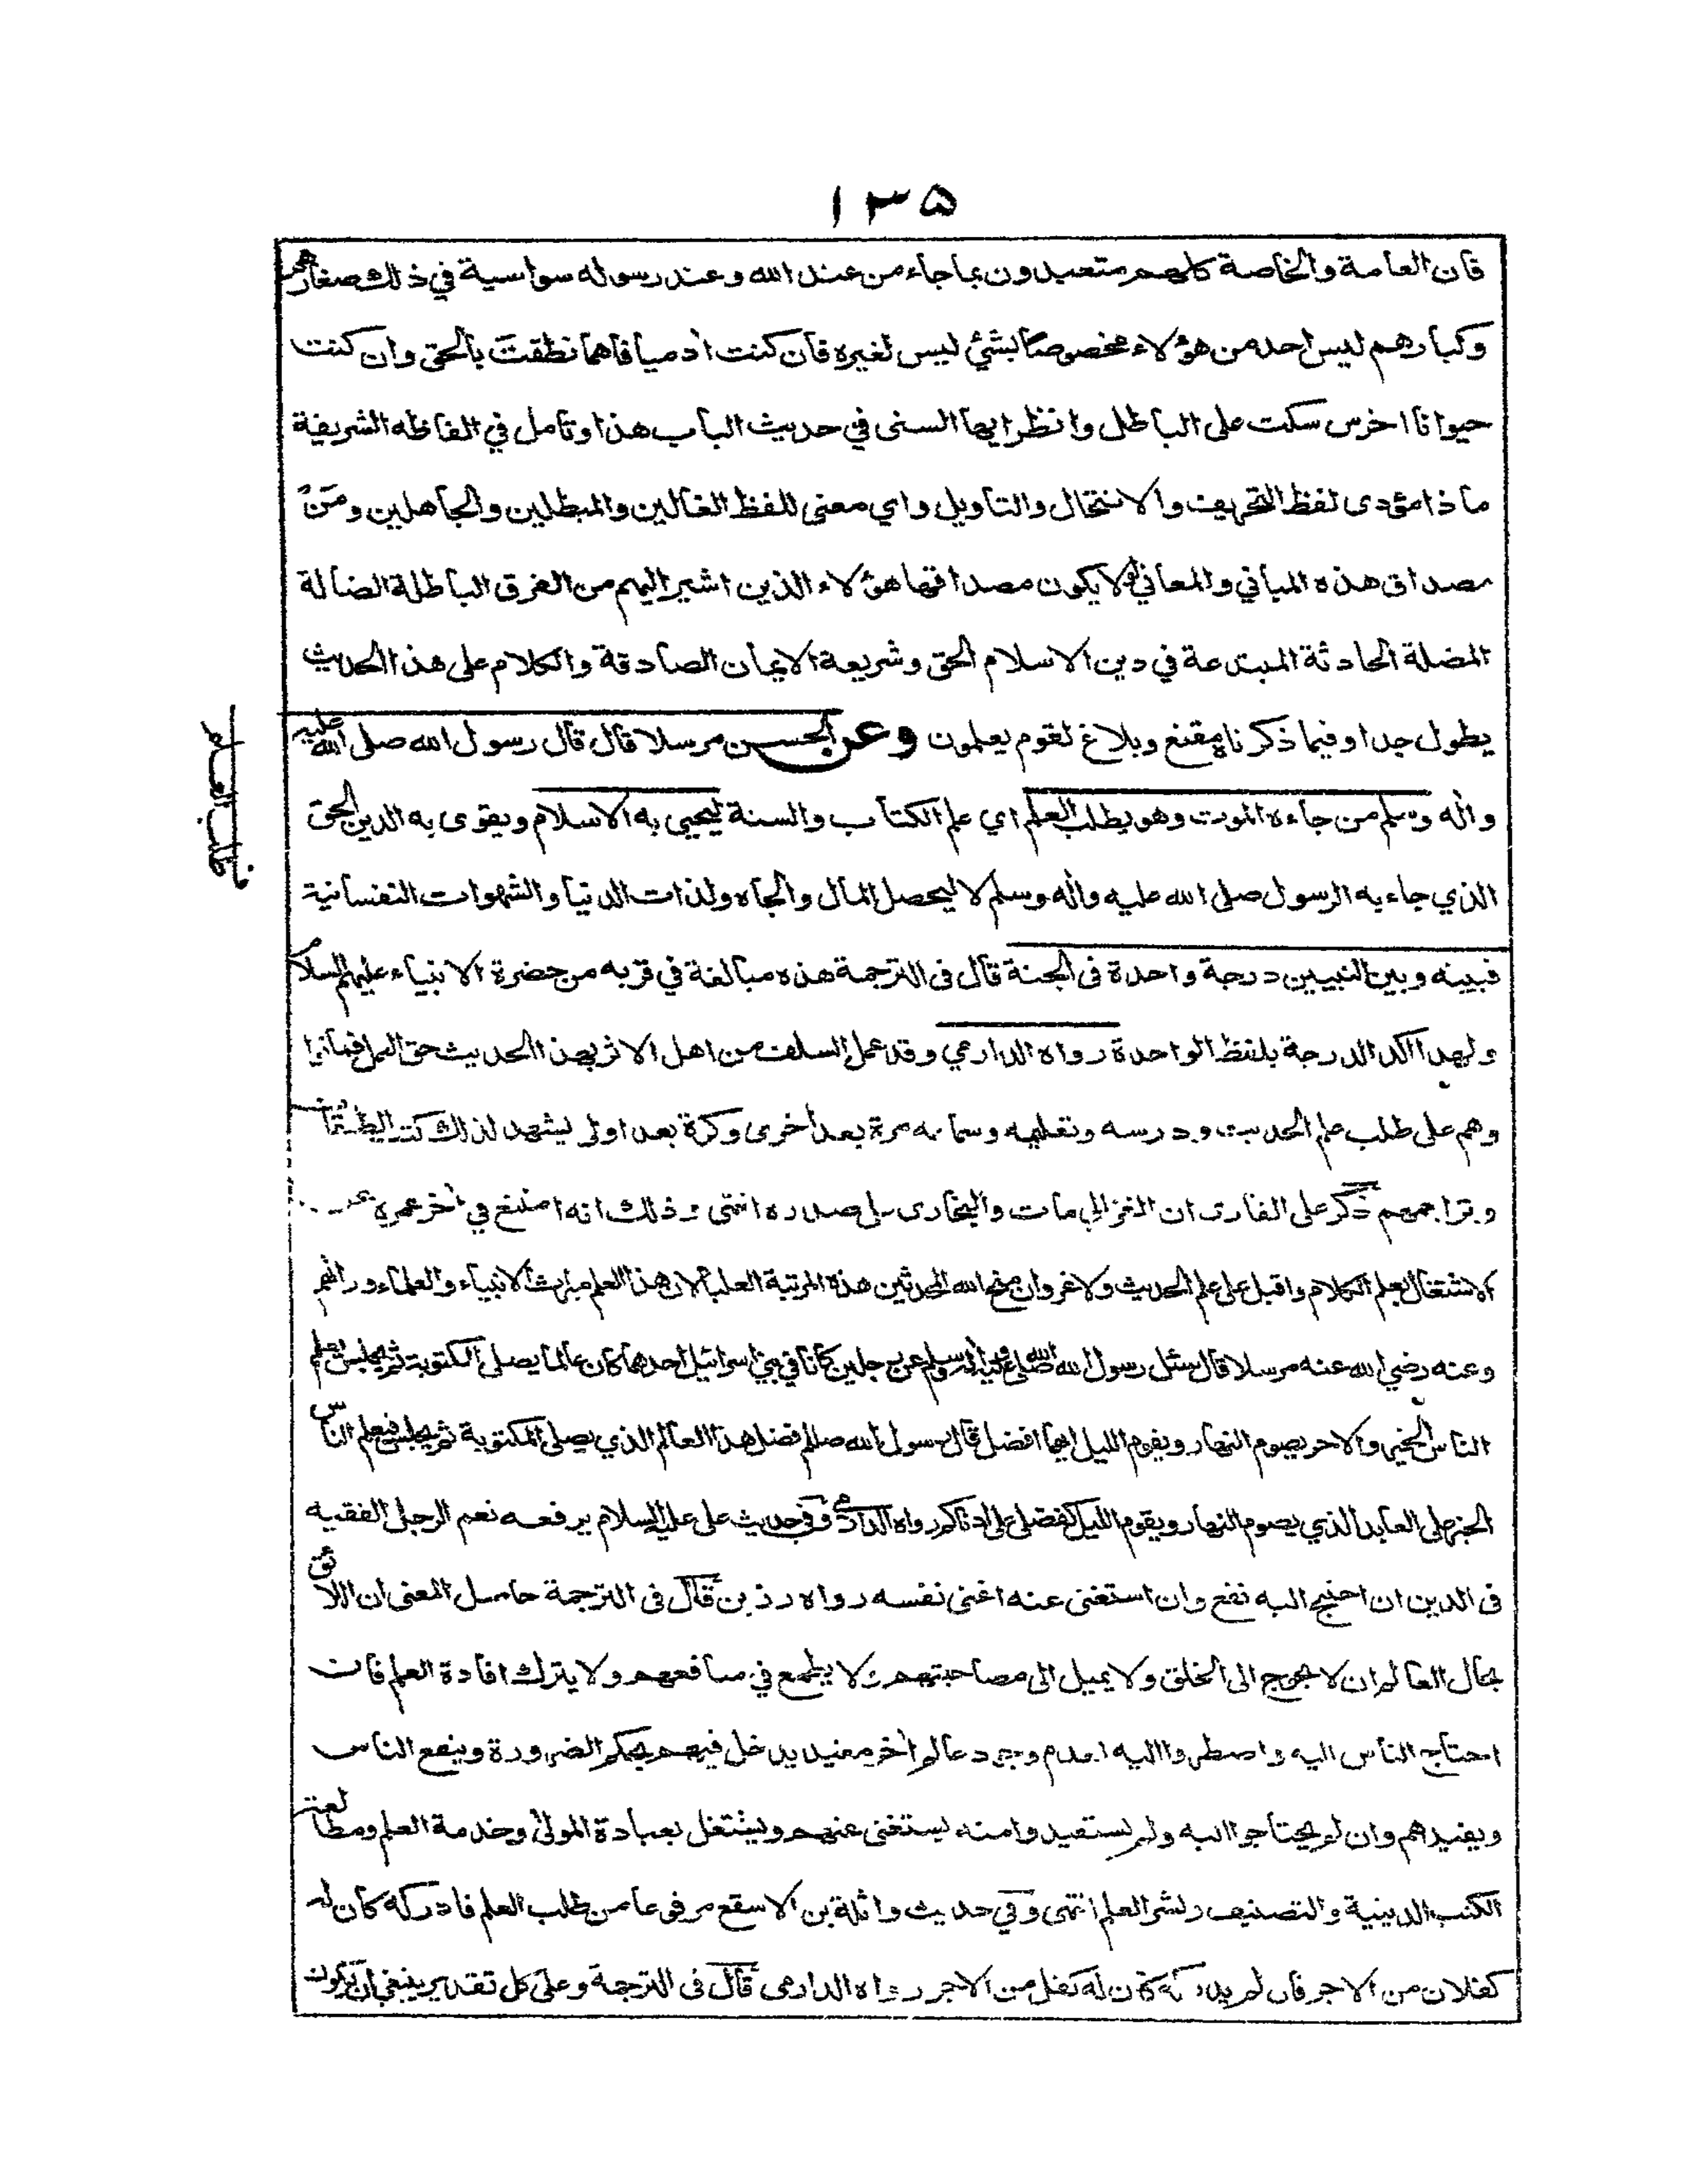 ١٣٥
فان العامة والخاصة كلهم متعبدون بما جاء من عند الله وعند رسوله سواسية في ذلك صغارهم
وكبارهم ليس احد من هؤلاء مخصوصا بشئ ليس لغيره فان كنت ادميا فاهما نطقت بالحق وان كنت
حيوانا اخرس سكت على الباطل وانظر ايها السنى في حديث الباب هذا وتامل في الفاظه الشريفة
ما ذا مؤدى لفظ التحريف والانتحال والتاويل واي معنى للفظ الغالين والمبطلين والجاهلين ومن
مصداق هذه المباني والمعاني لولا يكون مصداقها هؤلاء الذين اشير اليهم من الفرق الباطلة الضالة
المضلة الحادثة المبتدعة في دين الاسلام الحق وشريعة الايمان الصادقة والكلام على هذا الحديث
يطول جدا وفيما ذكرناه مقنع وبلاغ لقوم يعلمون وعن الحسن مرسلا قال قال رسول الله صلى الله عليه
واله وسلم من جاءه الموت وهو يطلب العلم اي علم الكتاب والسنة ليحيى به الاسلام ويقوى به الدين الحق
الذي جاء به الرسول صلى الله عليه واله وسلم لا ليحصل المال والجاه ولذات الدنيا والشهوات النفسانية
فبينه وبين النبيين درجة واحدة فى الجنة قال فى الترجمة هذه مبالغة في قربه من حضرة الانبياء عليهم السلام
ولهذا اكد الدرجة بلفظ الواحدة رواه الدارمي وقد عمل السلف من اهل الاثر بهذا الحديث حق العمل فماتوا
وهم على طلب علم الحديث ودرسه وتعليمه وسماعه مرة بعد اخرى وكرة بعد اولى ليشهد لذلك كتب الطبقات
وتراجمهم ذكر على القارى ان الغزالي مات والبخارى على صدره انتهى وذلك انه امتنع في اخر عمره عن
الاشتغال بعلم الكلام واقبل على علم الحديث ولا غرو ان منح الله المحدثين هذه المرتبة العليا لان هذا العلم ميراث الانبياء والعلماء وراثهم
وعنه رضي الله عنه مرسلا قال سئل رسول الله صلى الله عليه واله وسلم عن رجلين كانا في بني اسرائيل احدهما كان عالما يصلى المكتوبة ثم يجلس يعلم
الناس الخير والاخر يصوم النهار ويقوم الليل ايهما افضل قال رسول الله صللم فضل هذا العالم الذي يصلى المكتوبة ثم يجلس فيعلم الناس
الخير على العابد الذي يصوم النهار ويقوم الليل كفضلي على ادناكم رواه الدارمي وفي حديث على عليه السلام يرفعه نعم الرجل الفقيه
فى الدين ان احتيج اليه نفع وان استغنى عنه اغنى نفسه رواه رزين قال فى الترجمة حاصل المعنى ان اللائق
بحال العالم ان لا يحوج الى الخلق ولا يميل الى مصاحبتهم ولا يطمع في منافعهم ولا يترك افادة العلم فان
احتاج الناس اليه واضطروا اليه لعدم وجود عالم اخر مفيد يدخل فيهم بحكم الضرورة وينفع الناس
ويفيدهم وان لم يحتاجوا اليه ولم يستفيدوا منه يستغنى عنهم ويشتغل بعبادة المولى وخدمة العلم ومطالعة
الكتب الدينية والتصنيف ونشر العلم انتهى وفي حديث واثلة بن الاسقع مرفوعا من طلب العلم فادركه كان له
كفلان من الاجر فان لم يدركه كان له كفل من الاجر رواه الدارمى قال فى الترجمة وعلى كل تقدير ينبغي ان تكون